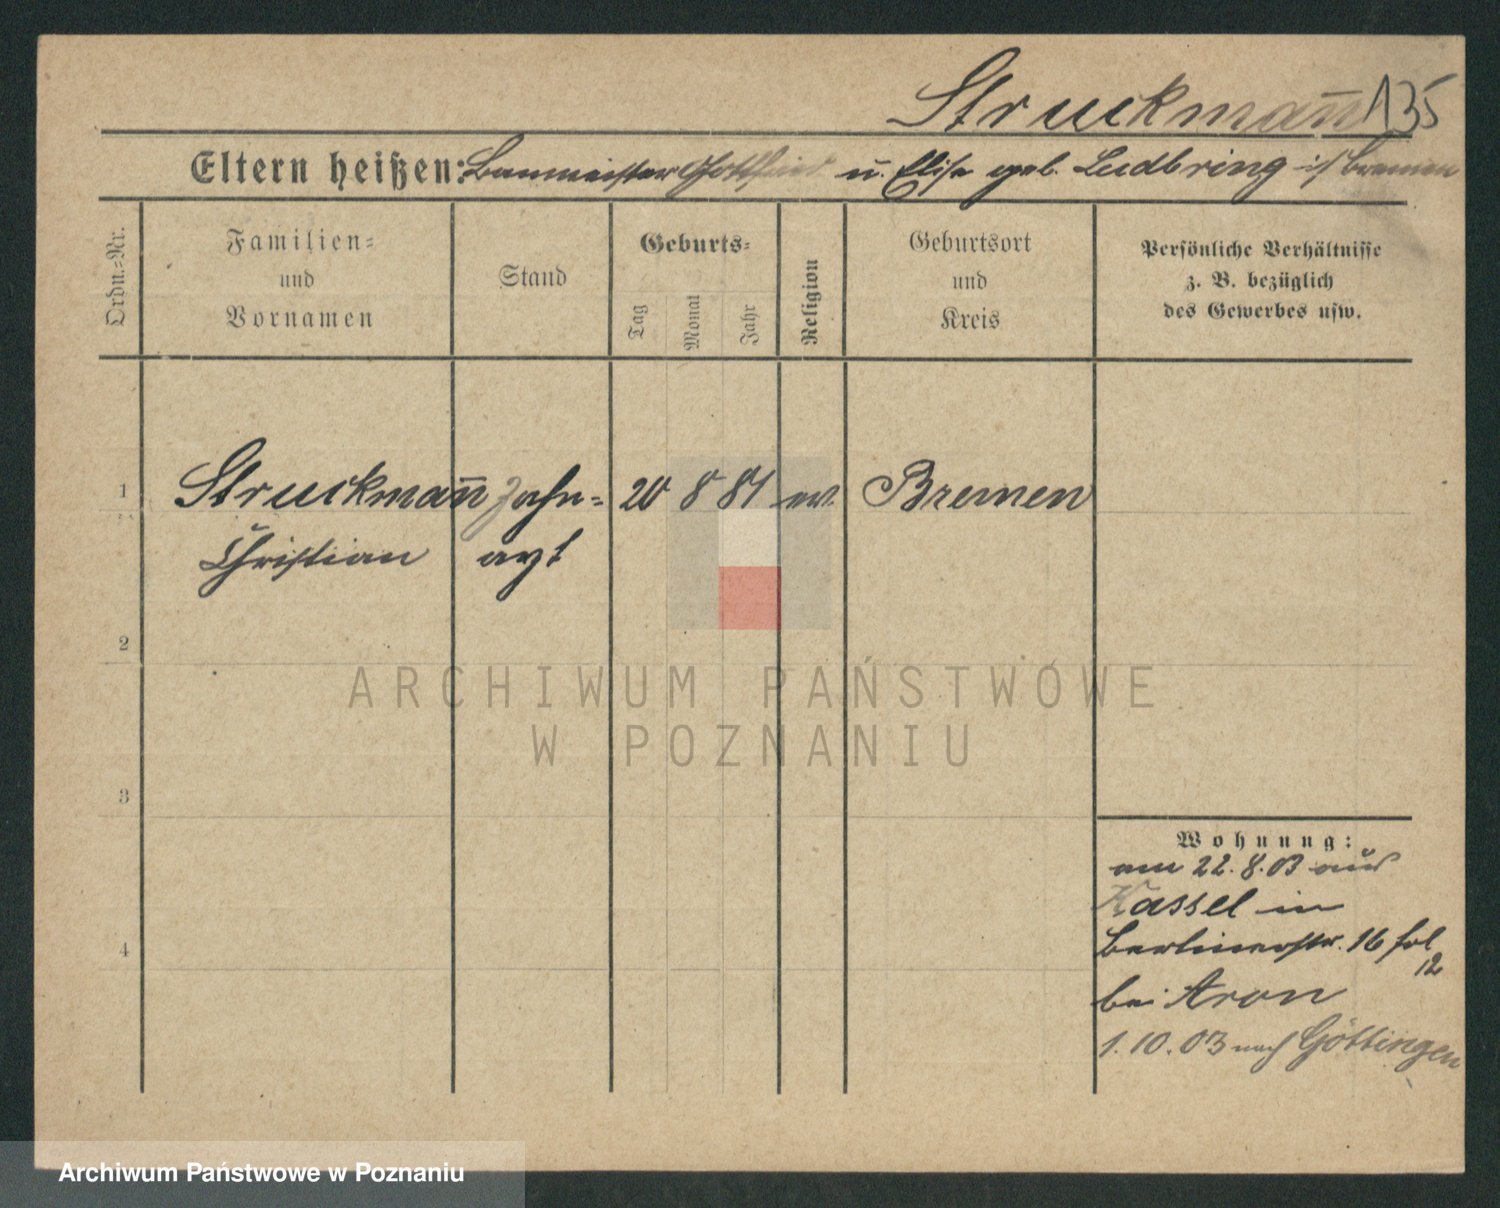 Struckman̄ 135
Eltern heißen: Baumeister Gottfried u. Elise geb. Ludbring in Bremen
Ordn.-Nr.
Familien-
und
Vornamen
Stand
Geburts-
Tag
Monat
Jahr
Religion
Geburtsort
und
Kreis
Persönliche Verhältnisse
z. B. bezüglich
des Gewerbes usw.
1 Struckman̄ Zahn- 20 8 81 ev. Bremen
Christian arzt
2
3
4
Wohnung:
am 22.8.03 aus
Kassel in
Berlinerstr. 16
12
bei Aron
1.10.03 nach Göttingen
ARCHIWUM PAŃSTWOWE
W POZNANIU
Archiwum Państwowe w Poznaniu